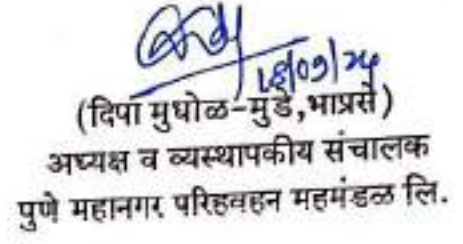 १६/०९/२५
(दिपा मुधोळ-मुंडे,भाप्रसे)
अध्यक्ष व व्यस्थापकीय संचालक
पुणे महानगर परिहवहन महमंडळ लि.